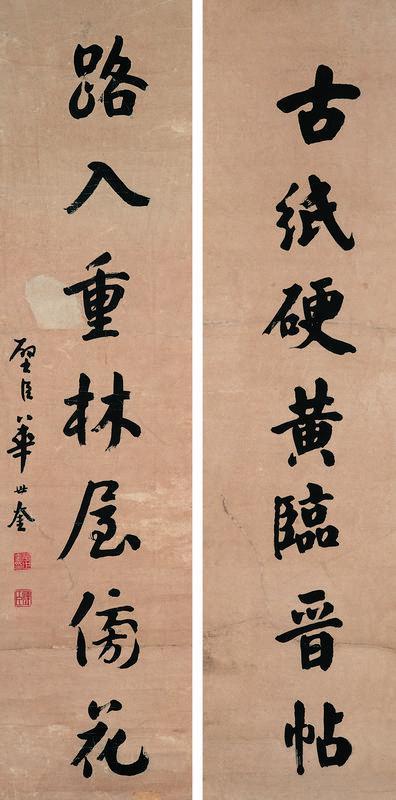 古紙硬黃臨晉帖
路入重林屋傍花
璧臣華世奎